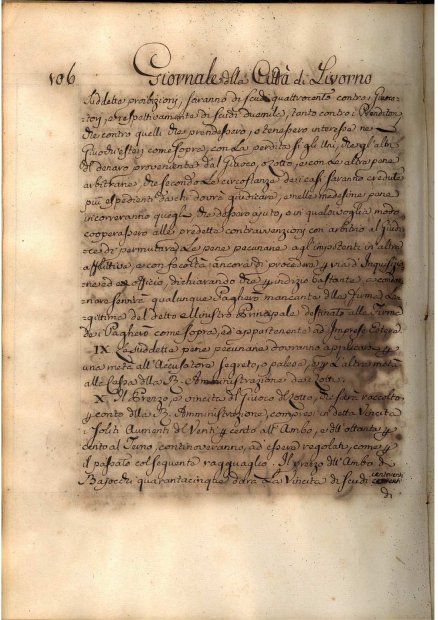 106 Giornale della Città di Livorno
suddette proibizioni, saranno di scudi quattrocento contro i
e respettivamente di scudi duemila, tanto contro i Prenditori
che contro quelli che prendessero, o tenessero interesse ne
Giuochi esteri come sopra, con la perdita sì gli Uni, che gl'altri
del denaro proveniente dal Giuoco, o Lotto, e con le altre pene
arbitrarie, che secondo le circostanze dei casi saranno credute
più espedienti da chi dovrà giudicare, e nelle medesime pene
incorreranno quegli che dessero ajuto, o in qualsivoglia modo
cooperassero alle predette contravvenzioni con arbitrio al Giudi
ce di permutare le pene pecuniarie agl'impotenti in altre
afflittive, e con facoltà ancora di procedere per via di Inquisi
ne ed ex officio, dichiarando che per indizio bastante a
nove sentirà qualunque Pagherò mancante della Firma
del detto Ministro Principale destinato alle Firme
dei Pagherò come sopra, ed appartenente ad Imprese Estere.
IX. Le suddette pene pecuniarie dovranno applicarsi per
una metà all'Accusatore segreto, o palese, e per l'altra metà
alla Cassa della R. Amministrazione dei Lotti.
X. Il Prezzo, e vincita del Giuoco del Lotto, che sarà raccolto
per conto della R. Amministrazione, compresi in detta Vincita
i soliti Aumenti del Venti per cento all'Ambo, e dell'ottanta per
cento al Terno, continoveranno ad essere regolate, come per
il passato col seguente ragguaglio. Il prezzo dell'Ambo di
Bajocchi quarantacinque darà la Vincita di scudi
di